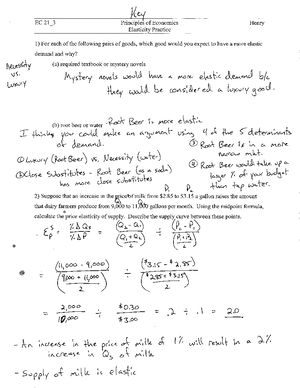 Key
EC 21_3 Principles of Economics Henry
Elasticity Practice
1) For each of the following pairs of goods, which good would you expect to have a more elastic
demand and why?
Necessity
vs.
Luxury
(a) required textbook or mystery novels
Mystery novels would have a more elastic demand b/c
they would be considered a luxury good.
(b) root beer or water - Root Beer is more elastic
I think you could make an argument using 4 of the 5 determinants
of demand.
① Luxury (Root Beer) vs. Necessity (water)
② Close Substitutes - Root Beer (as a soda)
has more close substitutes
③ Root Beer is in a more
narrow mkt.
④ Root Beer would take up a
larger % of your budget
than tap water.
P₁ P₂
2) Suppose that an increase in the price of milk from $2.85 to $3.15 a gallon raises the amount
Q₁ Q₂
that dairy farmers produce from 9,000 to 11,000 gallons per month. Using the midpoint formula,
calculate the price elasticity of supply. Describe the supply curve between these points.
= %ΔQs / %ΔP = (Q₂ - Q₁) / ((Q₁ + Q₂) / 2) ÷ (P₂ - P₁) / ((P₁ + P₂) / 2)
= (11,000 - 9,000) / ((9,000 + 11,000) / 2) ÷ ($3.15 - $2.85) / (($2.85 + $3.15) / 2)
= 2,000 / 10,000 ÷ $0.30 / $3.00 = .2 ÷ .1 = 2.0
- An increase in the price of milk of 1% will result in a 2%
increase in Qs of milk
- Supply of milk is elastic